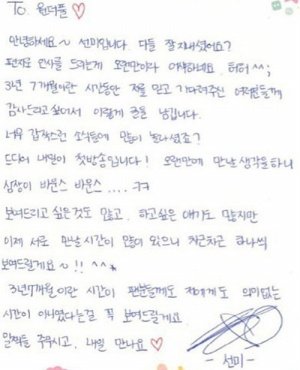 To. 원더풀♡
안녕하세요~ 선미입니다. 다들 잘 지내셨어요?
편지로 인사를 드리는게 오랜만이라 어색하네요. 허허^^;
3년 7개월이란 시간동안 저를 믿고 기다려주신 여러분들께
감사드리고 싶어서 이렇게 글을 남깁니다.
너무 갑작스런 소식들에 많이 놀라셨죠?
드디어 내일이 첫방송입니다! 오랜만에 만날 생각을 하니
심장이 바운스 바운스 .... ㅋㅋ
보여드리고 싶은것도 많고, 하고싶은 얘기도 많지만
이제 서로 만날 시간이 많이 있으니 차근차근 하나씩
보여드릴게요~!! ^^*
3년7개월이란 시간이 팬분들께도 저에게도 의미없는
시간이 아니였다는걸 꼭 보여드릴게요.
말짱들 주무시고, 내일 만나요♡
- 선미 -